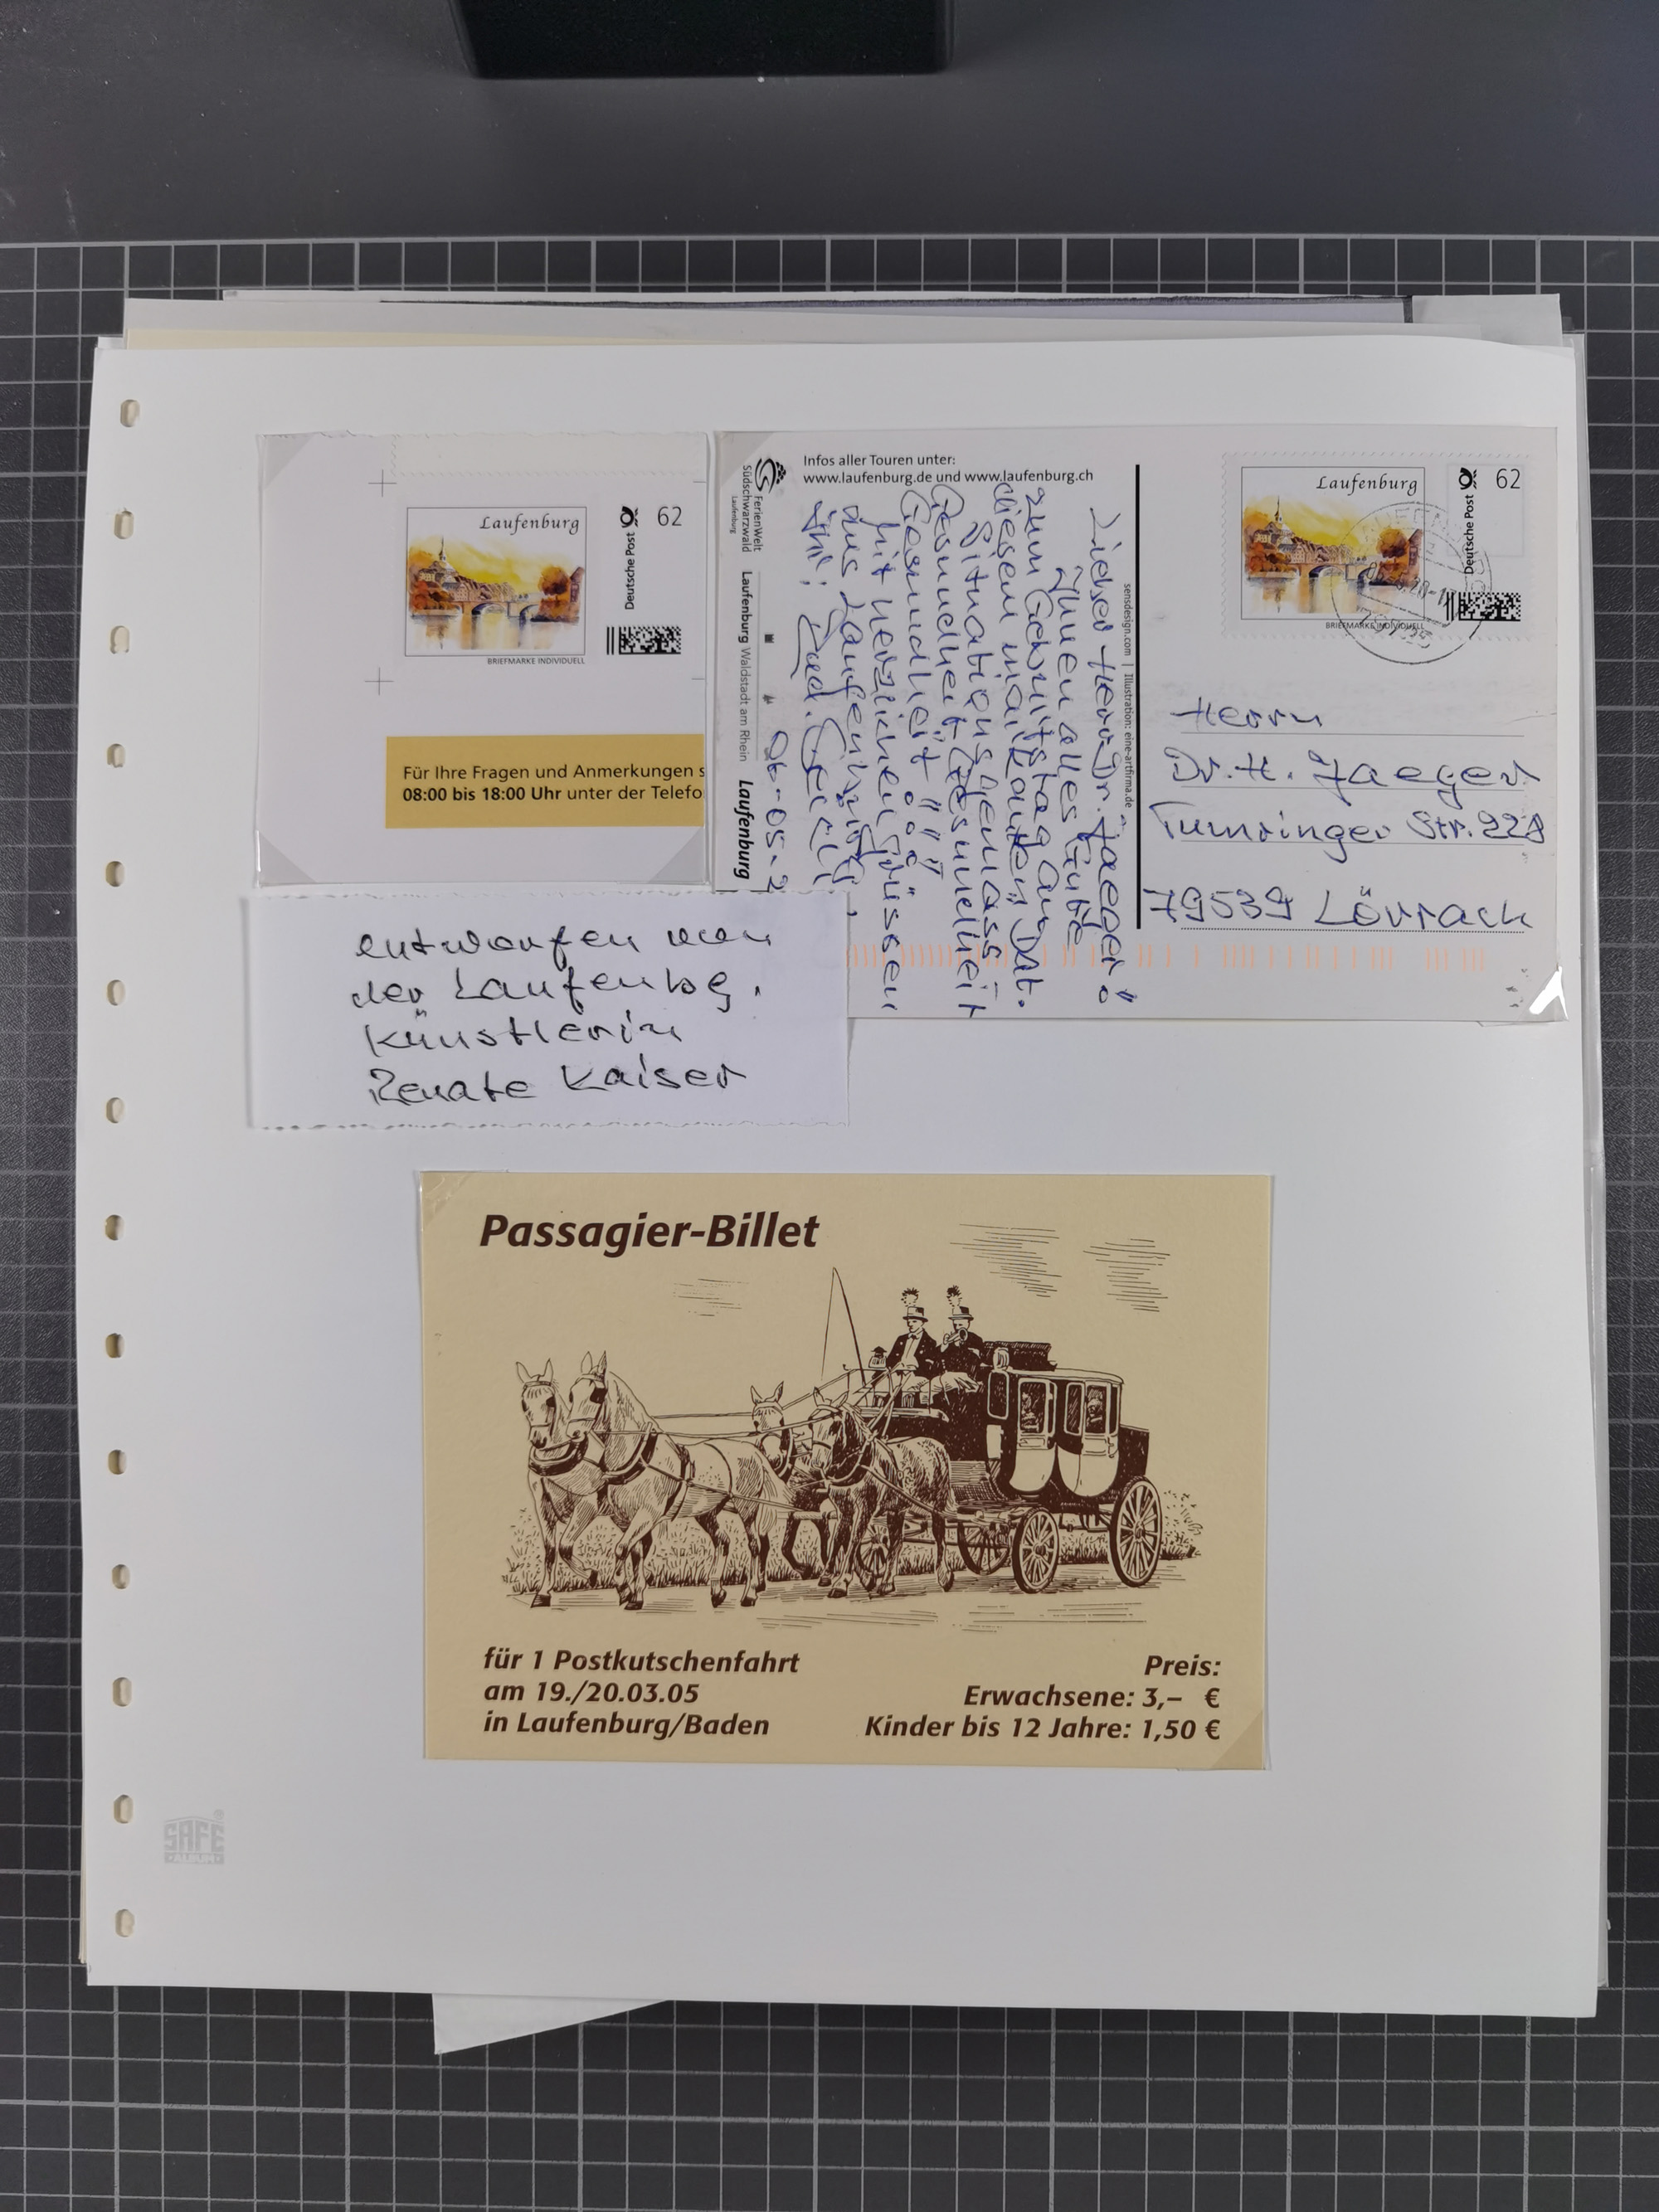 Laufenburg
Deutsche Post
62
BRIEFMARKE INDIVIDUELL
Für Ihre Fragen und Anmerkungen s
08:00 bis 18:00 Uhr unter der Telefo
Infos aller Touren unter:
www.laufenburg.de und www.laufenburg.ch
FerienWelt
Südschwarzwald
Laufenburg
Laufenburg Waldstadt am Rhein
Laufenburg
06.-05.-2
Lieber Herr Dr. Jaeger!
Ihnen alles Gute
zum Geburtstag am
diesem mal
Situationsgemäss
Gesundheit, Gesundheit
Gesundheit!!!
Mit herzlichen Grüssen
aus Laufenburg,
Ihr:
sensdesign.com | Illustration: eine-artfirma.de
Laufenburg
Deutsche Post
62
BRIEFMARKE INDIVIDUELL
Herrn
Dr. H. Jaeger
Tumringer Str. 228
79539 Lörrach
entworfen von
der Laufenbg.
Künstlerin
Renate Kaiser
Passagier-Billet
für 1 Postkutschenfahrt
am 19./20.03.05
in Laufenburg/Baden
Preis:
Erwachsene: 3,– €
Kinder bis 12 Jahre: 1,50 €
SAFE
ALBUM